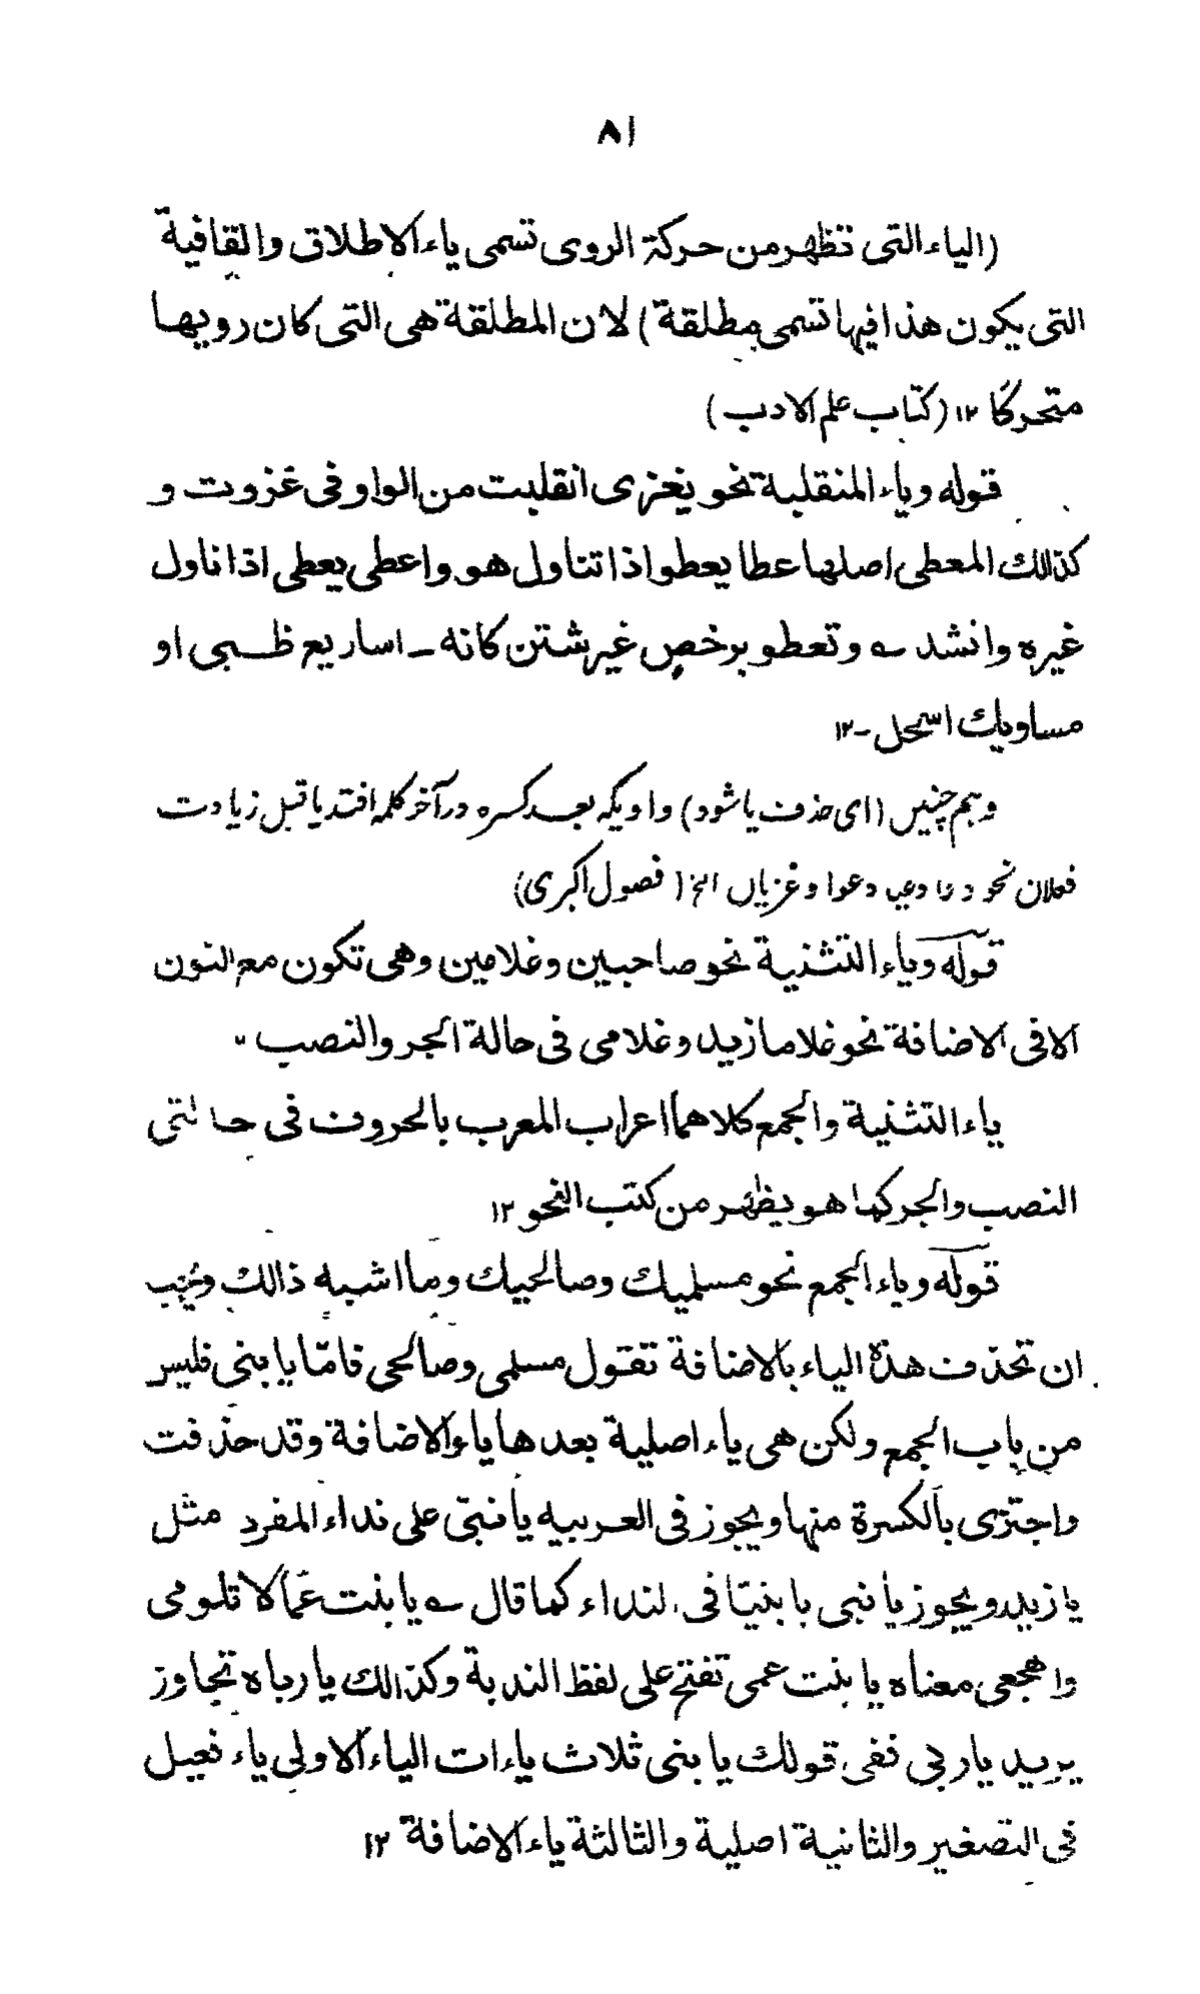 ٨١
(الیاء التی تظهر من حرکة الروی تسمی یاء الاطلاق والقافیة
التی یکون هذا فیها تسمی مطلقة) لان المطلقة هی التی کان رویها
متحرکًا ١٢ (کتاب علم الادب)
قوله ویاء المنقلبة نحو یغزی انقلبت من الواو فی غزوت و
کذالك المعطی اصلها عطا یعطو اذا تناول هو واعطی یعطی اذا ناول
غیره وانشد ؎ وتعطو برخصٍ غیر شتن کانه ـ اساریع ظبی او
مساویك اسحل ـ ١٢
وہم چنیں (ای حذف یا شود) واویکہ بعد کسرہ در آخر کلمہ افتد یا قبل زیادت
فعلان نحو دعا دعیا دعوا وغزیان الخ (فصول اکبری)
قوله ویاء التثنیة نحو صاحبین وغلامین وهی تکون مع النون
الا فی الاضافة نحو غلاما زید وغلامی فی حالة الجر والنصب "
یاء التثنیة والجمع کلاهما اعراب المعرب بالحروف فی حالتی
النصب والجر کما هو یظهر من کتب النحو ١٢
قوله ویاء الجمع نحو مسلمیك وصالحیك وما اشبه ذالك ویجب
ان تحذف هذه الیاء بالاضافة تقول مسلمی وصالحی فامّا یا بنی فلیس
من باب الجمع ولکن هی یاء اصلیة بعدها یاء الاضافة وقد حذفت
واجتزی بالکسرة منها ویجوز فی العربیه یا بنیّ علی نداء المفرد مثل
یا زید ویجوز یا بنی یا بنیّا فی النداء کما قال ؎ یا بنت عمّا لا تلومی
واهجعی معناه یا بنت عمی تفتح علی لفظ الندبة وکذالك یا رباه تجاوز
یرید یا ربی ففی قولك یا بنی ثلاث یاءات الیاء الاولی یاء فعیل
فی التصغیر والثانیة اصلیة والثالثة یاء الاضافة ١٢